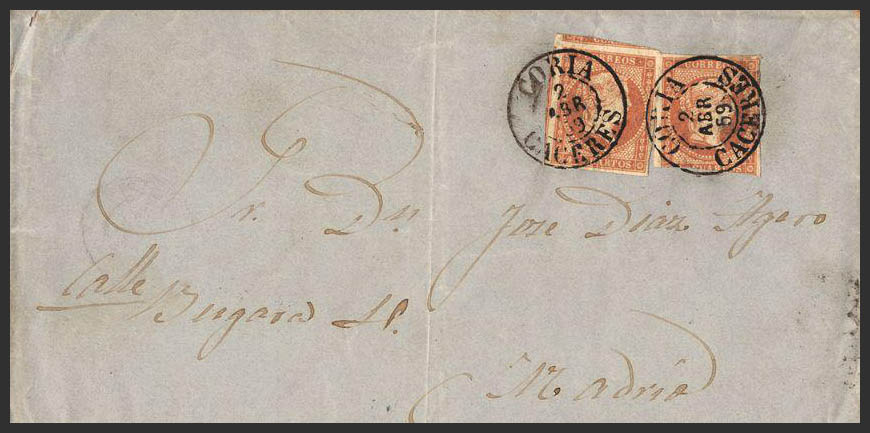 CORREOS CORREOS
CORIA 2 ABR 59 CACERES
CORIA 2 ABR 59 CACERES
CUARTOS CUARTOS
Sr. Dn. José Diaz Agero
Calle Bergara
Madrid